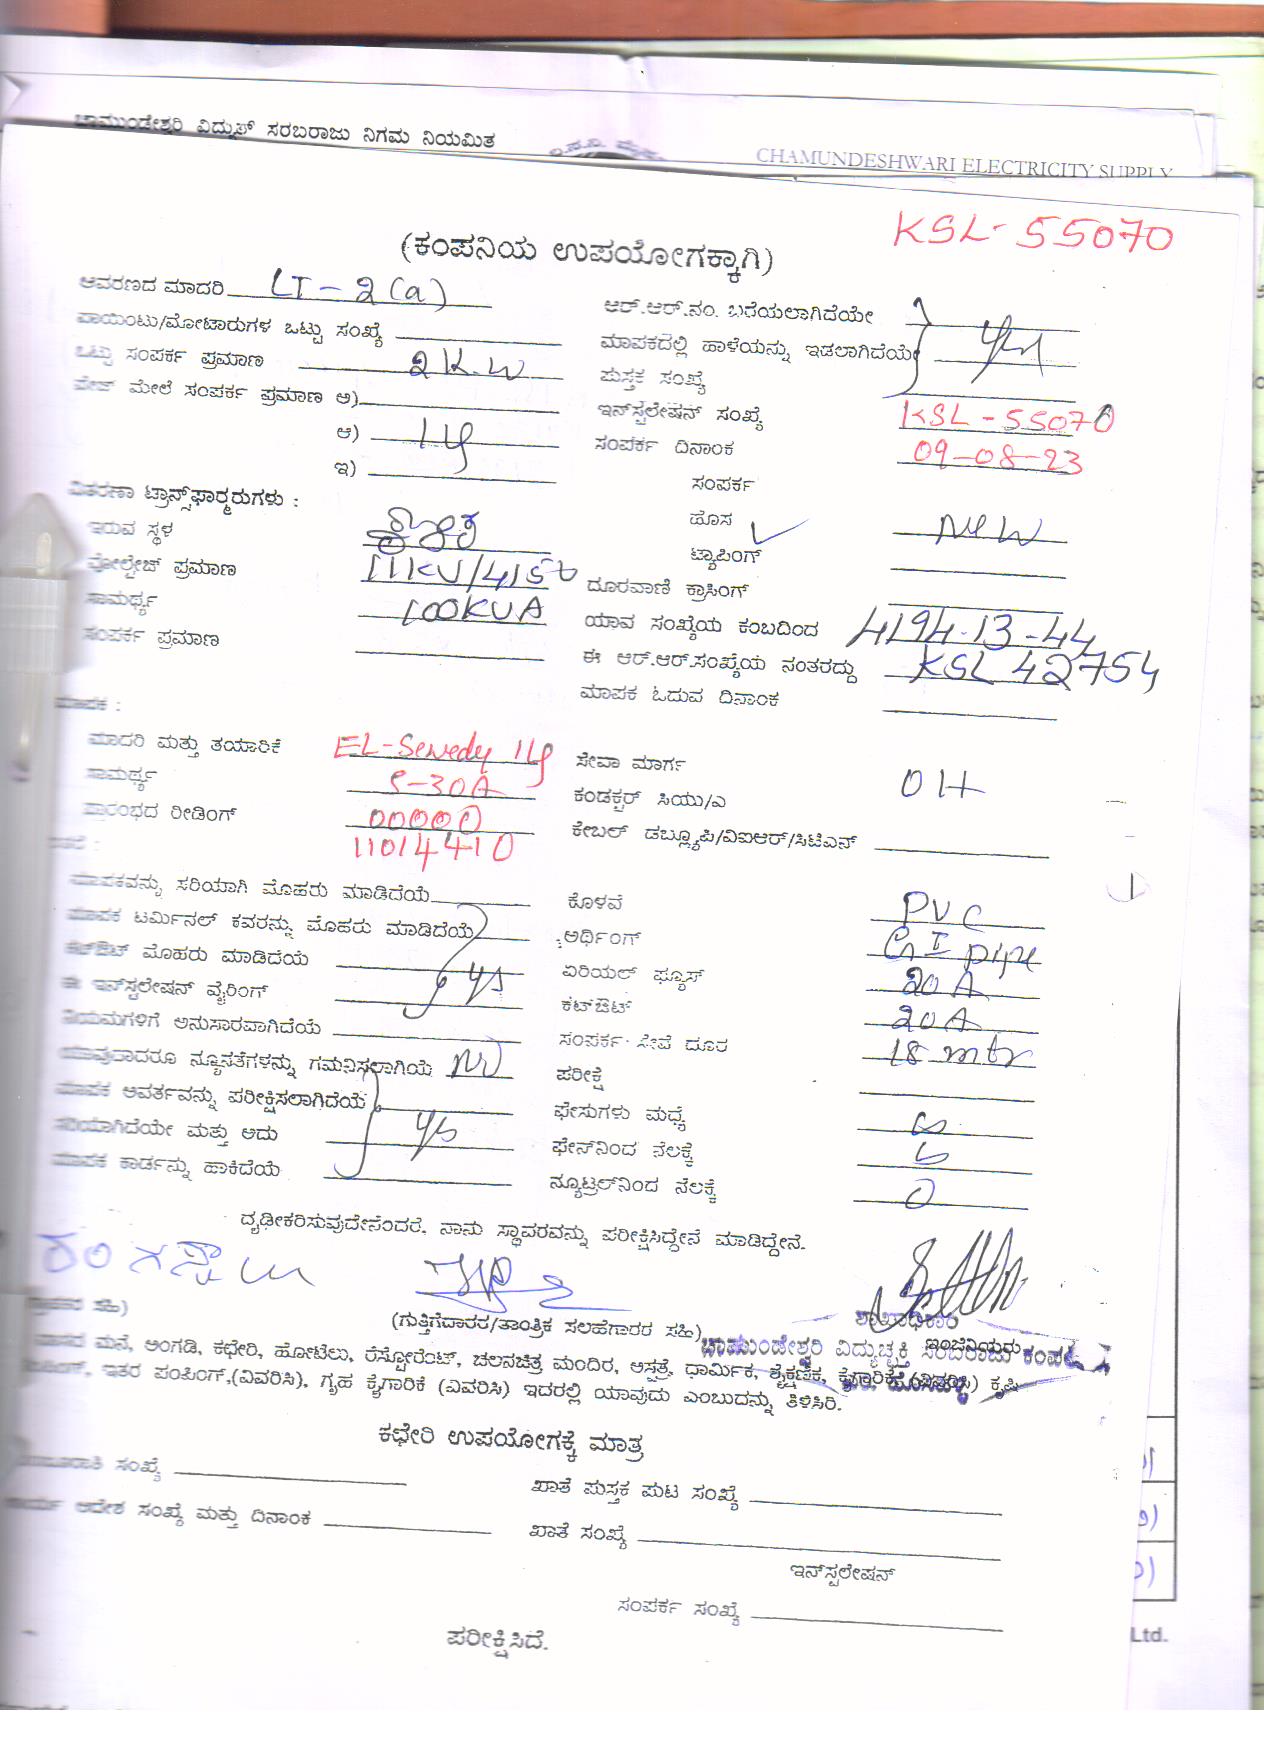 ಚಾಮುಂಡೇಶ್ವರಿ ವಿದ್ಯುತ್ ಸರಬರಾಜು ನಿಗಮ ನಿಯಮಿತ
CHAMUNDESHWARI ELECTRICITY SUPPLY
KSL-55070
(ಕಂಪನಿಯ ಉಪಯೋಗಕ್ಕಾಗಿ)
ಆವರಣದ ಮಾದರಿ LT-2(a) ಆರ್.ಆರ್.ನಂ. ಬರೆಯಲಾಗಿದೆಯೇ
ಪಾಯಿಂಟು/ಮೋಟಾರುಗಳ ಒಟ್ಟು ಸಂಖ್ಯೆ ಮಾಪಕದಲ್ಲಿ ಹಾಳೆಯನ್ನು ಇಡಲಾಗಿದೆಯೇ yes
ಒಟ್ಟು ಸಂಪರ್ಕ ಪ್ರಮಾಣ 2K.W ಪುಸ್ತಕ ಸಂಖ್ಯೆ
ಫೇಜ್ ಮೇಲೆ ಸಂಪರ್ಕ ಪ್ರಮಾಣ ಅ) ಇನ್‌ಸ್ಟಲೇಷನ್ ಸಂಖ್ಯೆ KSL-55070
ಆ) 1φ ಸಂಪರ್ಕ ದಿನಾಂಕ 09-08-23
ಇ) ಸಂಪರ್ಕ
ವಿತರಣಾ ಟ್ರಾನ್ಸ್‌ಫಾರ್ಮರುಗಳು : ಹೊಸ ✓ New
ಇರುವ ಸ್ಥಳ ಟ್ಯಾಪಿಂಗ್
ವೋಲ್ಟೇಜ್ ಪ್ರಮಾಣ 11KV/415v ದೂರವಾಣಿ ಕ್ರಾಸಿಂಗ್
ಸಾಮರ್ಥ್ಯ 100KVA ಯಾವ ಸಂಖ್ಯೆಯ ಕಂಬದಿಂದ 4194-13-44
ಸಂಪರ್ಕ ಪ್ರಮಾಣ ಈ ಆರ್.ಆರ್.ಸಂಖ್ಯೆಯ ನಂತರದ್ದು KSL 42754
ಮಾಪಕ ಓದುವ ದಿನಾಂಕ
ಮಾಪಕ :
ಮಾದರಿ ಮತ್ತು ತಯಾರಿಕೆ EL-Sewedy 1φ ಸೇವಾ ಮಾರ್ಗ
ಸಾಮರ್ಥ್ಯ 5-30A ಕಂಡಕ್ಟರ್ ಸಿಯು/ಎ OH
ಪ್ರಾರಂಭದ ರೀಡಿಂಗ್ 00000 ಕೇಬಲ್ ಡಬ್ಲ್ಯೂಪಿ/ವಿಐಆರ್/ಸಿಟಿಎಸ್
11014410
ಮಾಪಕವನ್ನು ಸರಿಯಾಗಿ ಮೊಹರು ಮಾಡಿದೆಯೆ ಕೊಳವೆ PVC
ಮಾಪಕ ಟರ್ಮಿನಲ್ ಕವರನ್ನು ಮೊಹರು ಮಾಡಿದೆಯೆ ಅರ್ಥಿಂಗ್ GI pipe
ಕಟ್‌ಔಟ್ ಮೊಹರು ಮಾಡಿದೆಯೆ yes ಏರಿಯಲ್ ಫ್ಯೂಸ್ 20A
ಈ ಇನ್‌ಸ್ಟಲೇಷನ್ ವೈರಿಂಗ್ ಕಟ್‌ಔಟ್ 20A
ನಿಯಮಗಳಿಗೆ ಅನುಸಾರವಾಗಿದೆಯೆ ಸಂಪರ್ಕ ಸೇವೆ ದೂರ 18 mtr
ಯಾವುದಾದರೂ ನ್ಯೂನತೆಗಳನ್ನು ಗಮನಿಸಲಾಗಿಯೆ No ಪರೀಕ್ಷೆ
ಮಾಪಕ ಆವರ್ತವನ್ನು ಪರೀಕ್ಷಿಸಲಾಗಿದೆಯೆ ಫೇಸುಗಳು ಮಧ್ಯೆ
ಸರಿಯಾಗಿದೆಯೇ ಮತ್ತು ಅದು yes ಫೇಸ್‌ನಿಂದ ನೆಲಕ್ಕೆ
ಮಾಪಕ ಕಾರ್ಡನ್ನು ಹಾಕಿದೆಯೆ ನ್ಯೂಟ್ರಲ್‌ನಿಂದ ನೆಲಕ್ಕೆ 0
ದೃಢೀಕರಿಸುವುದೇನೆಂದರೆ, ನಾನು ಸ್ಥಾವರವನ್ನು ಪರೀಕ್ಷಿಸಿದ್ದೇನೆ ಮಾಡಿದ್ದೇನೆ.
ಸಹಿ) (ಗುತ್ತಿಗೆದಾರರ/ತಾಂತ್ರಿಕ ಸಲಹೆಗಾರರ ಸಹಿ) ಶಾಖಾಧಿಕಾರಿ
ಚಾಮುಂಡೇಶ್ವರಿ ವಿದ್ಯುಚ್ಛಕ್ತಿ ಸರಬರಾಜು ಕಂಪನಿ
ಇಂಜಿನಿಯರು
ಮನೆ, ಅಂಗಡಿ, ಕಛೇರಿ, ಹೋಟೆಲು, ರೆಸ್ಟೋರೆಂಟ್, ಚಲನಚಿತ್ರ ಮಂದಿರ, ಆಸ್ಪತ್ರೆ, ಧಾರ್ಮಿಕ, ಶೈಕ್ಷಣಿಕ, ಕೈಗಾರಿಕೆ (ವಿವರಿಸಿ) ಕೃಷಿ
ಇತರ ಪಂಪಿಂಗ್,(ವಿವರಿಸಿ), ಗೃಹ ಕೈಗಾರಿಕೆ (ವಿವರಿಸಿ) ಇದರಲ್ಲಿ ಯಾವುದು ಎಂಬುದನ್ನು ತಿಳಿಸಿರಿ.
ಕಛೇರಿ ಉಪಯೋಗಕ್ಕೆ ಮಾತ್ರ
ಸಂಖ್ಯೆ ಖಾತೆ ಪುಸ್ತಕ ಪುಟ ಸಂಖ್ಯೆ
ಆದೇಶ ಸಂಖ್ಯೆ ಮತ್ತು ದಿನಾಂಕ ಖಾತೆ ಸಂಖ್ಯೆ
ಇನ್‌ಸ್ಟಲೇಷನ್
ಸಂಪರ್ಕ ಸಂಖ್ಯೆ
Ltd.
ಪರೀಕ್ಷಿಸಿದೆ.